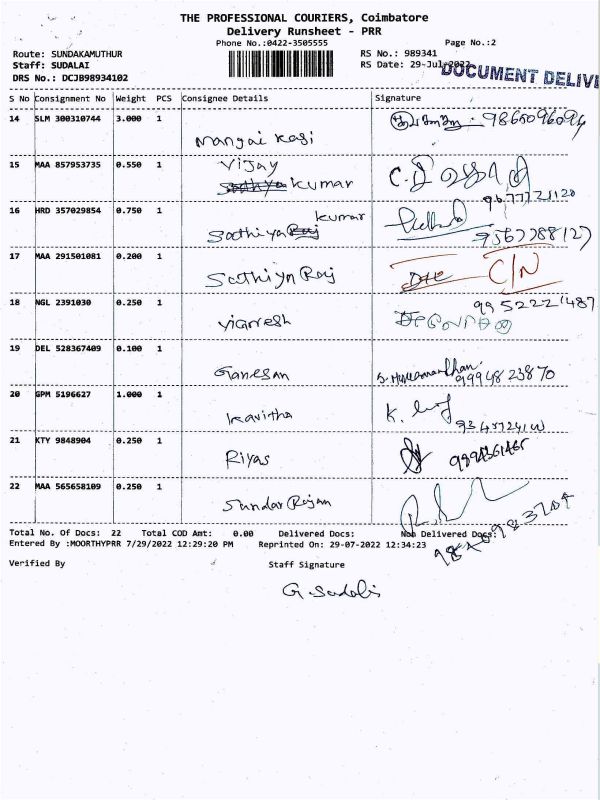 THE PROFESSIONAL COURIERS, Coimbatore
Delivery Runsheet - PRR
Phone No.:0422-3505555 Page No.:2
Route: SUNDAKAMUTHUR RS No.: 989341
Staff: SUDALAI RS Date: 29-Jul-2022
DOCUMENT DELIVE
DRS No.: DCJB98934102
S No Consignment No Weight PCS Consignee Details Signature
14 SLM 300310744 3.000 1
Mangai Kasi
15 MAA 857953735 0.550 1 Vijay
Kumar
16 HRD 357029854 0.750 1 Kumar
Sathiya Raj
17 MAA 291501081 0.200 1
Sathiya Raj C/N
18 NGL 2391030 0.250 1 9952221487
Vignesh
19 DEL 528367409 0.100 1
Ganesan 9994823870
20 GPM 5196627 1.000 1
Kavitha
21 KTY 9848904 0.250 1
Riyas
22 MAA 565658109 0.250 1
Sundar Rajan
Total No. Of Docs: 22 Total COD Amt: 0.00 Delivered Docs: Non Delivered Docs:
Entered By :MOORTHYPRR 7/29/2022 12:29:20 PM Reprinted On: 29-07-2022 12:34:23
Verified By Staff Signature
G. Sudalai